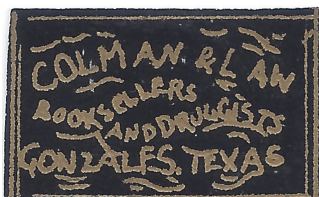 COLMAN & LAW
BOOKSELLERS
AND DRUGGISTS
GONZALES, TEXAS